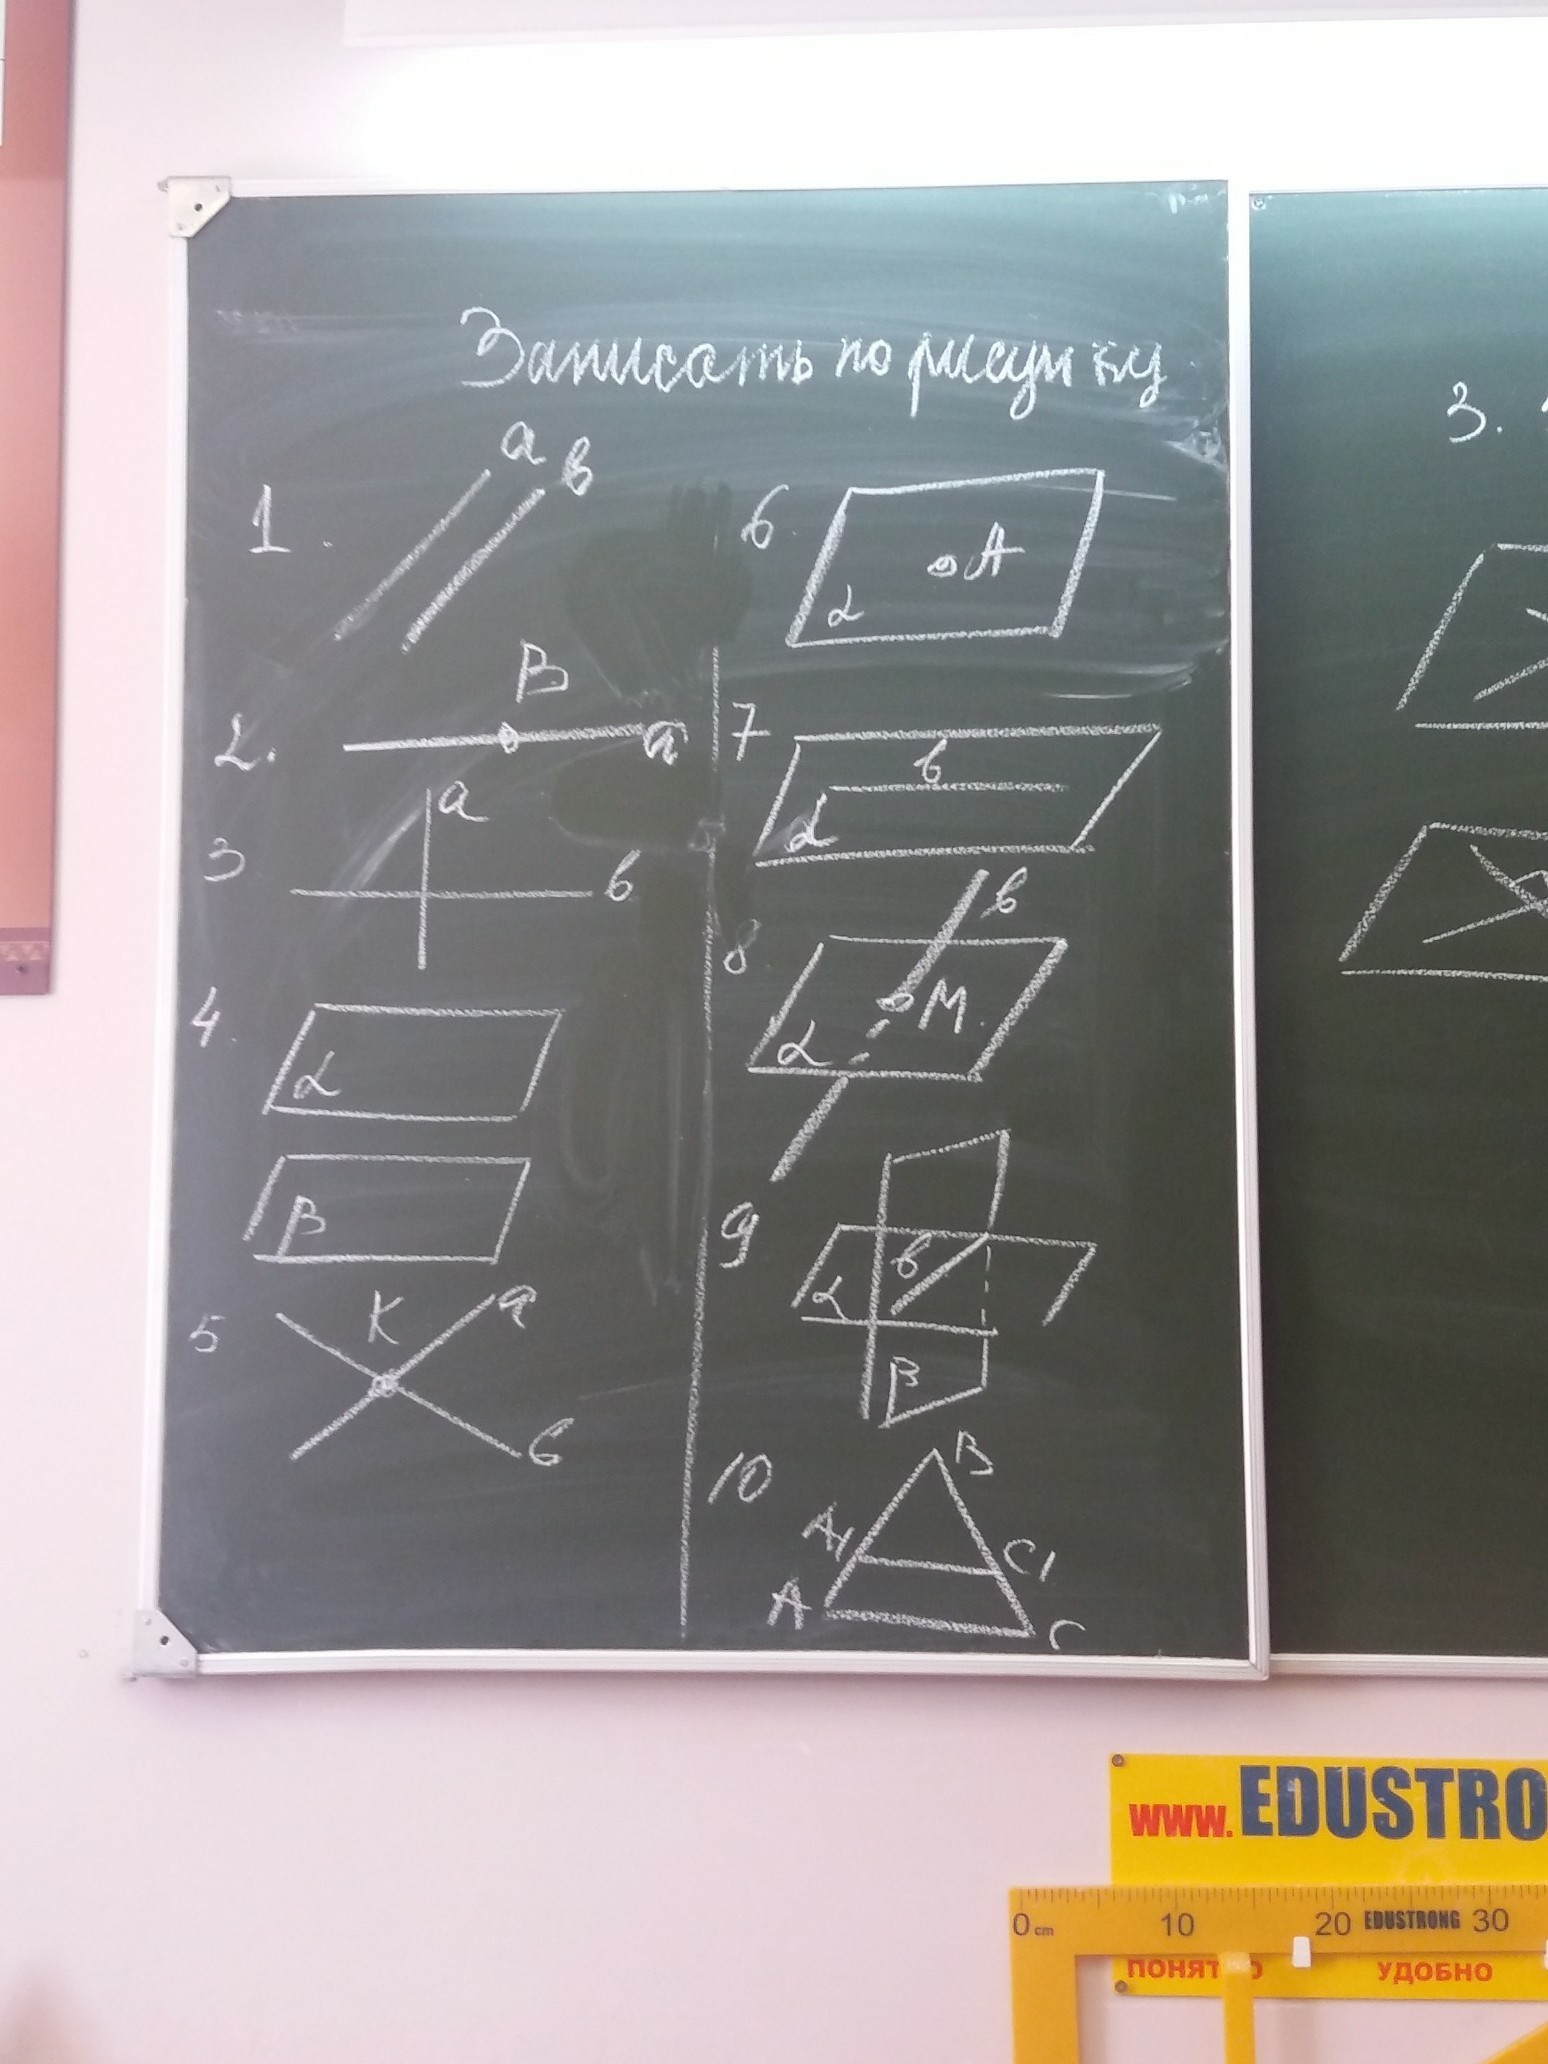 Записать по рисунку
1.
a в
2.
B
a
3
a
в
4.
α
β
5
K a
в
6.
A
α
7
в
α
8
в
M.
α
9
в
α
β
10
B
A1 C1
A C
3.
www.EDUSTRO
0 cm 10 20 EDUSTRONG 30
ПОНЯТ О УДОБНО